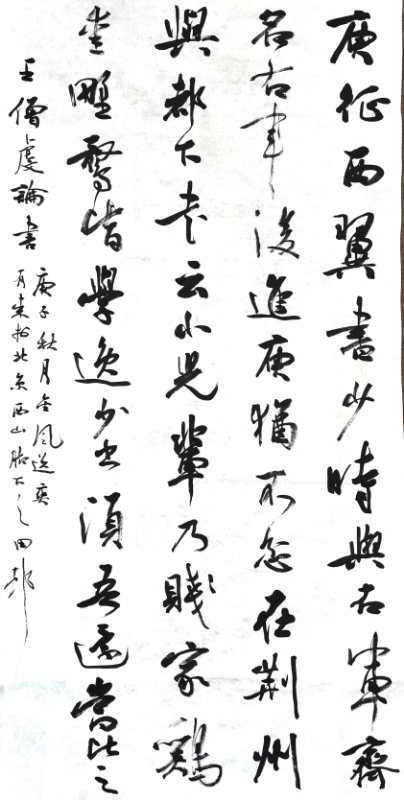 庾征西翼書少時與右軍齊
名右軍後進庾猶不忿在荊州
與都下書云小兒輩乃賤家鷄
愛野鶩皆學逸少書須吾還當比之
王僧虔論書
庚子秋月金風送爽
於北京西山脚下之田